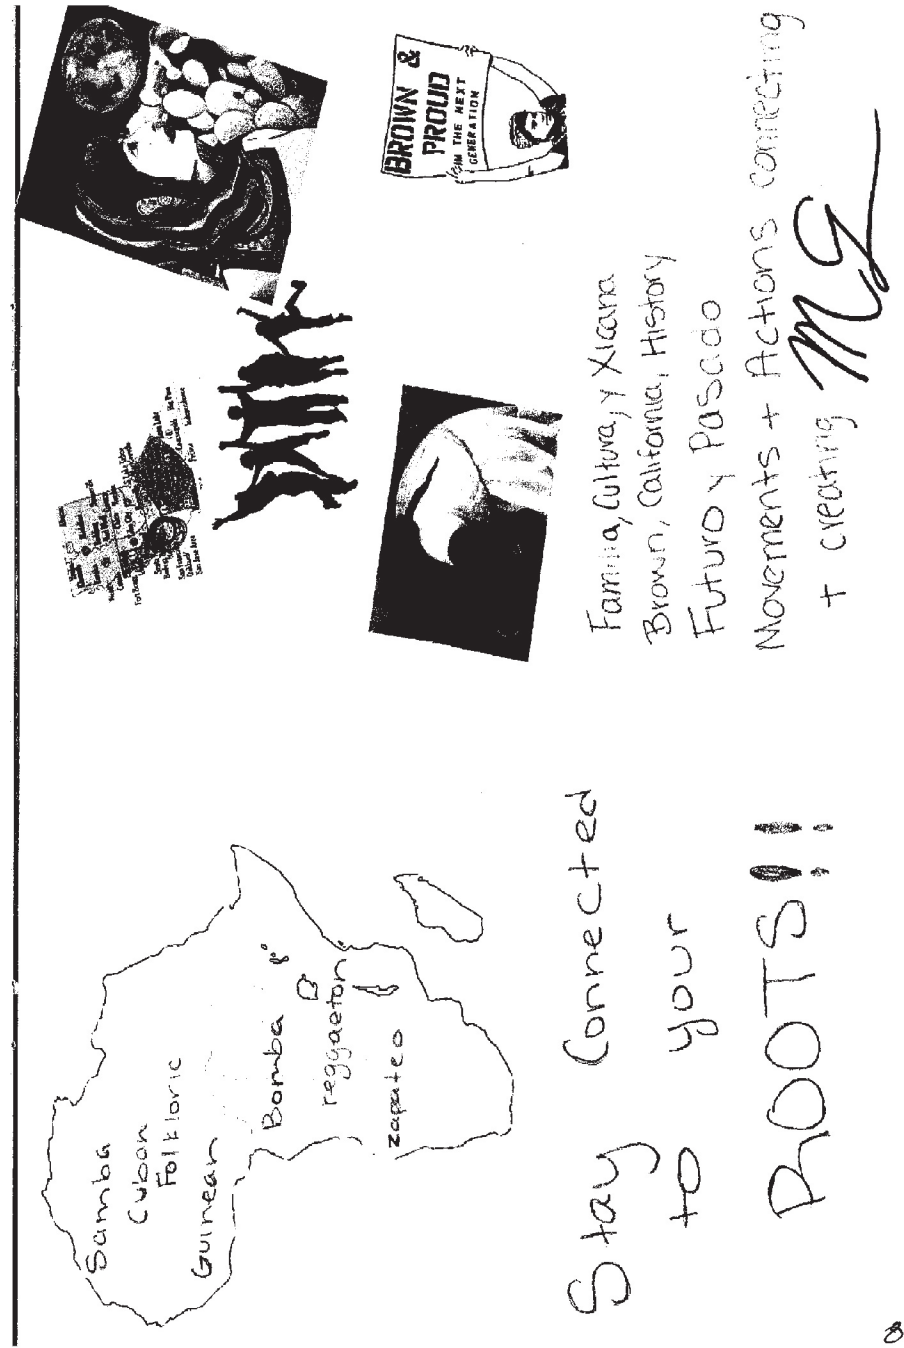 Samba
Cuban
Folkloric
Guinean
Bomba
reggaeton
zapateo
Stay Connected
to your
ROOTS!!
BROWN &
PROUD
IN THE NEXT
GENERATION
Familia, Cultura, y Xicana
Brown, California, History
Futuro y Pasado
Movements + Actions connecting
+ creating
8